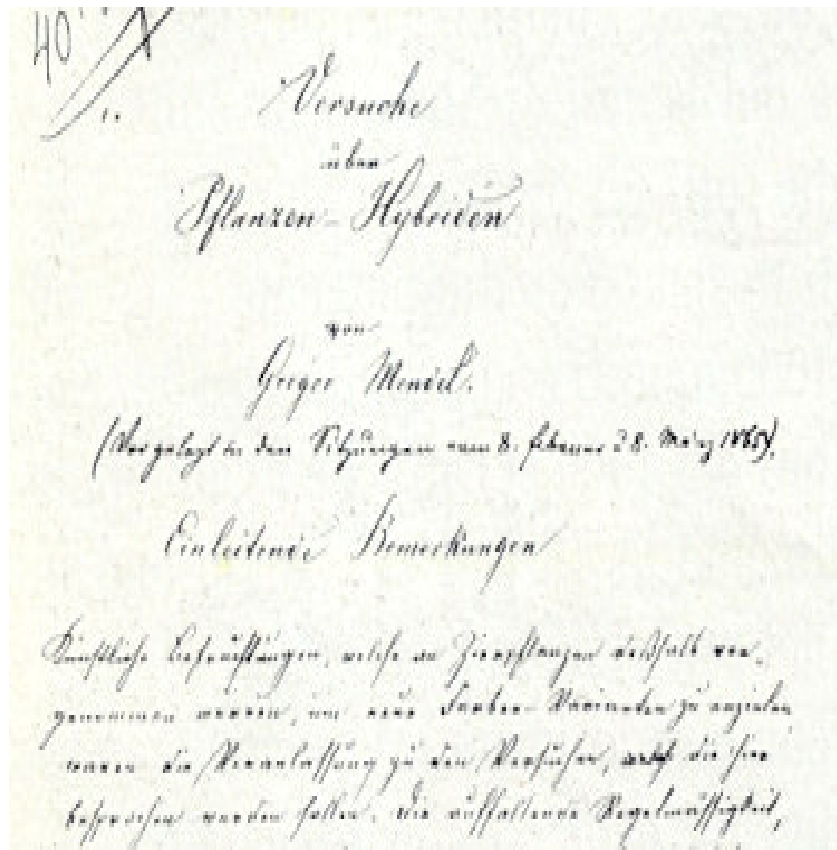 40
1.
Versuche
über
Pflanzen-Hybriden
von
Gregor Mendel.
(Vorgelegt in den Sitzungen vom 8. Februar u. 8. März 1865).
Einleitende Bemerkungen
Künstliche Befruchtungen, welche an Zierpflanzen deßhalb vor-
genommen wurden, um neue Farben-Varianten zu erzielen,
waren die Veranlassung zu den Versuchen, die hier
besprochen werden sollen. Die auffallende Regelmässigkeit,